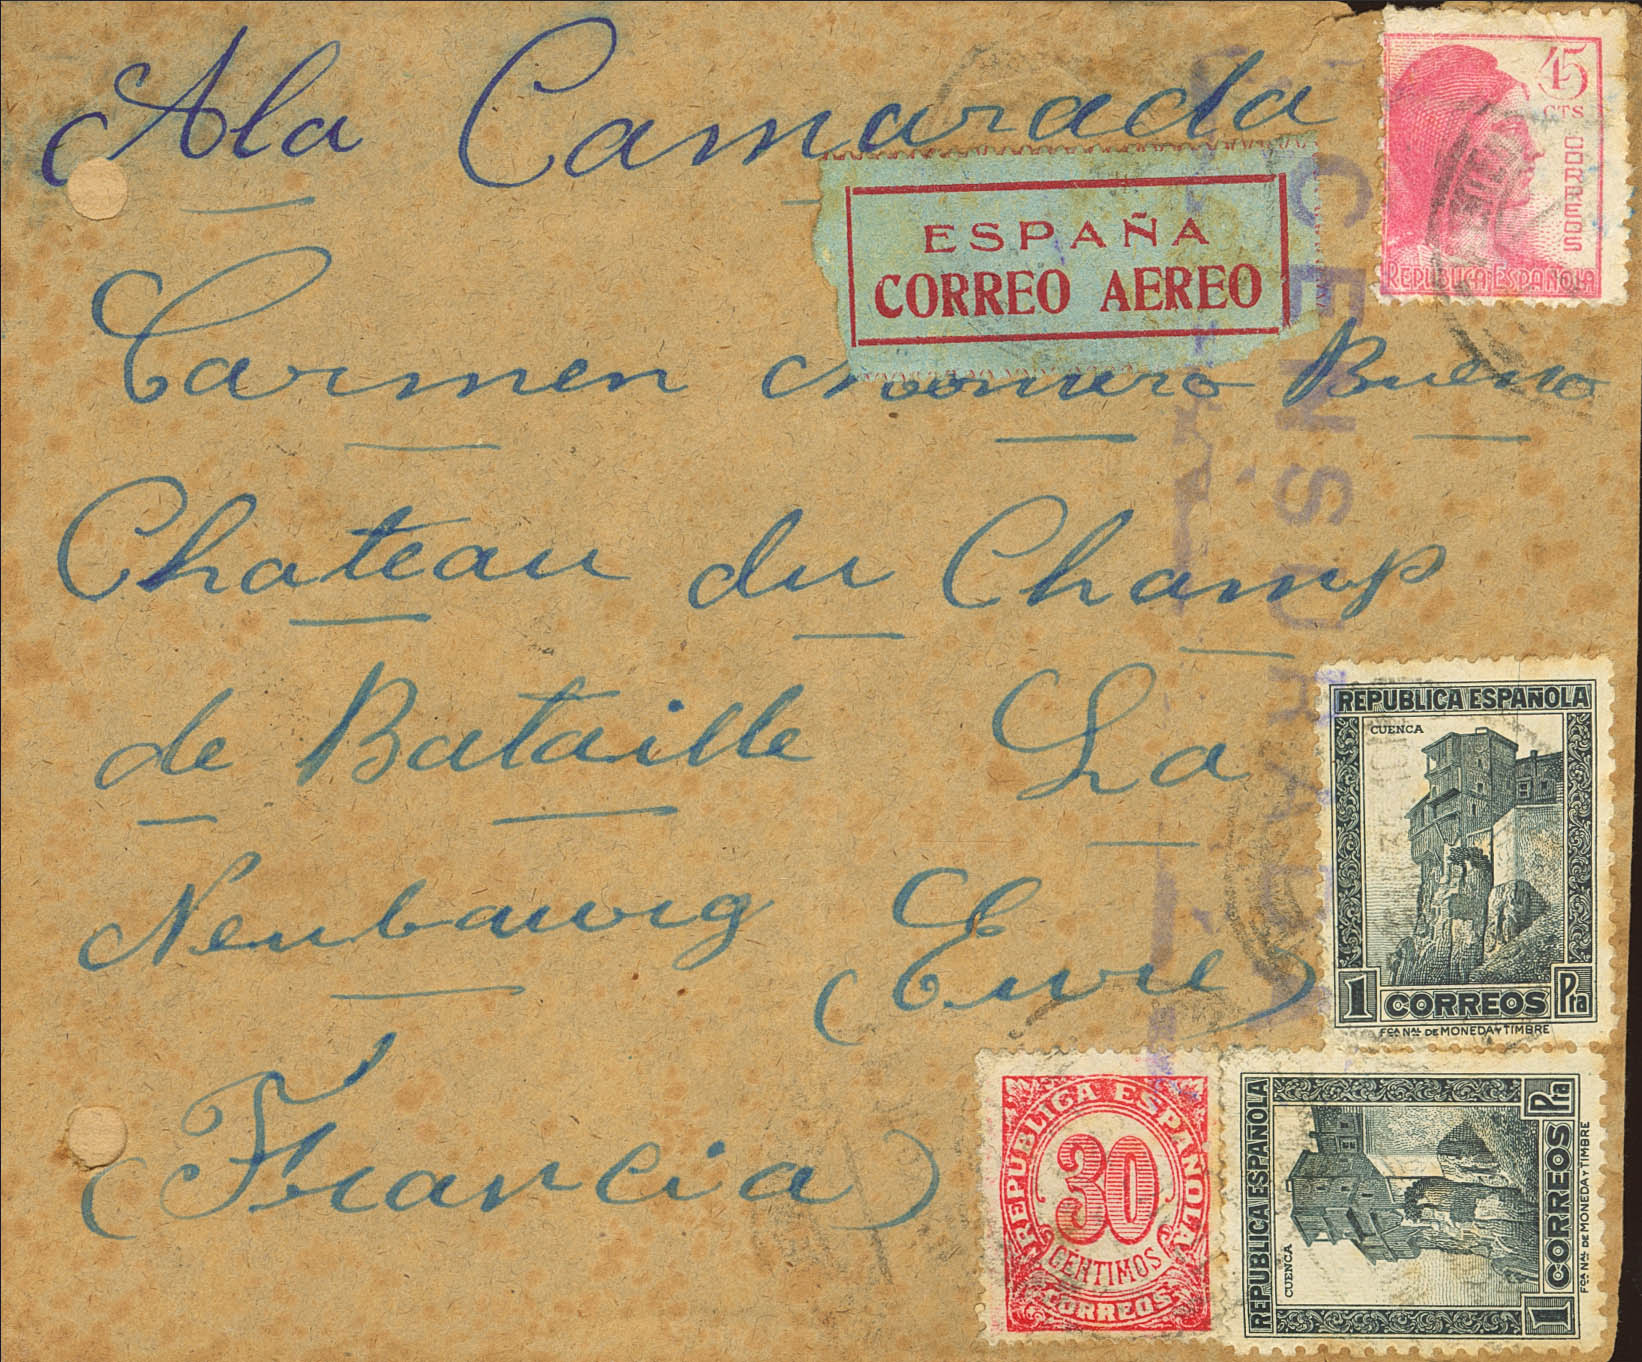 Ala Camarada
45
CTS
CORREOS
REPUBLICA ESPAÑOLA
ESPAÑA
CORREO AEREO
Carmen Romero Bueno
CENSURA
Chateau du Champ
de Bataille La
Neubourg (Eure)
(Francia)
REPUBLICA ESPAÑOLA
CUENCA
1 CORREOS Pta
FCA NAL DE MONEDA Y TIMBRE
REPUBLICA ESPAÑOLA
30
CENTIMOS
CORREOS
REPUBLICA ESPAÑOLA
CUENCA
1 CORREOS Pta
FCA NAL DE MONEDA Y TIMBRE